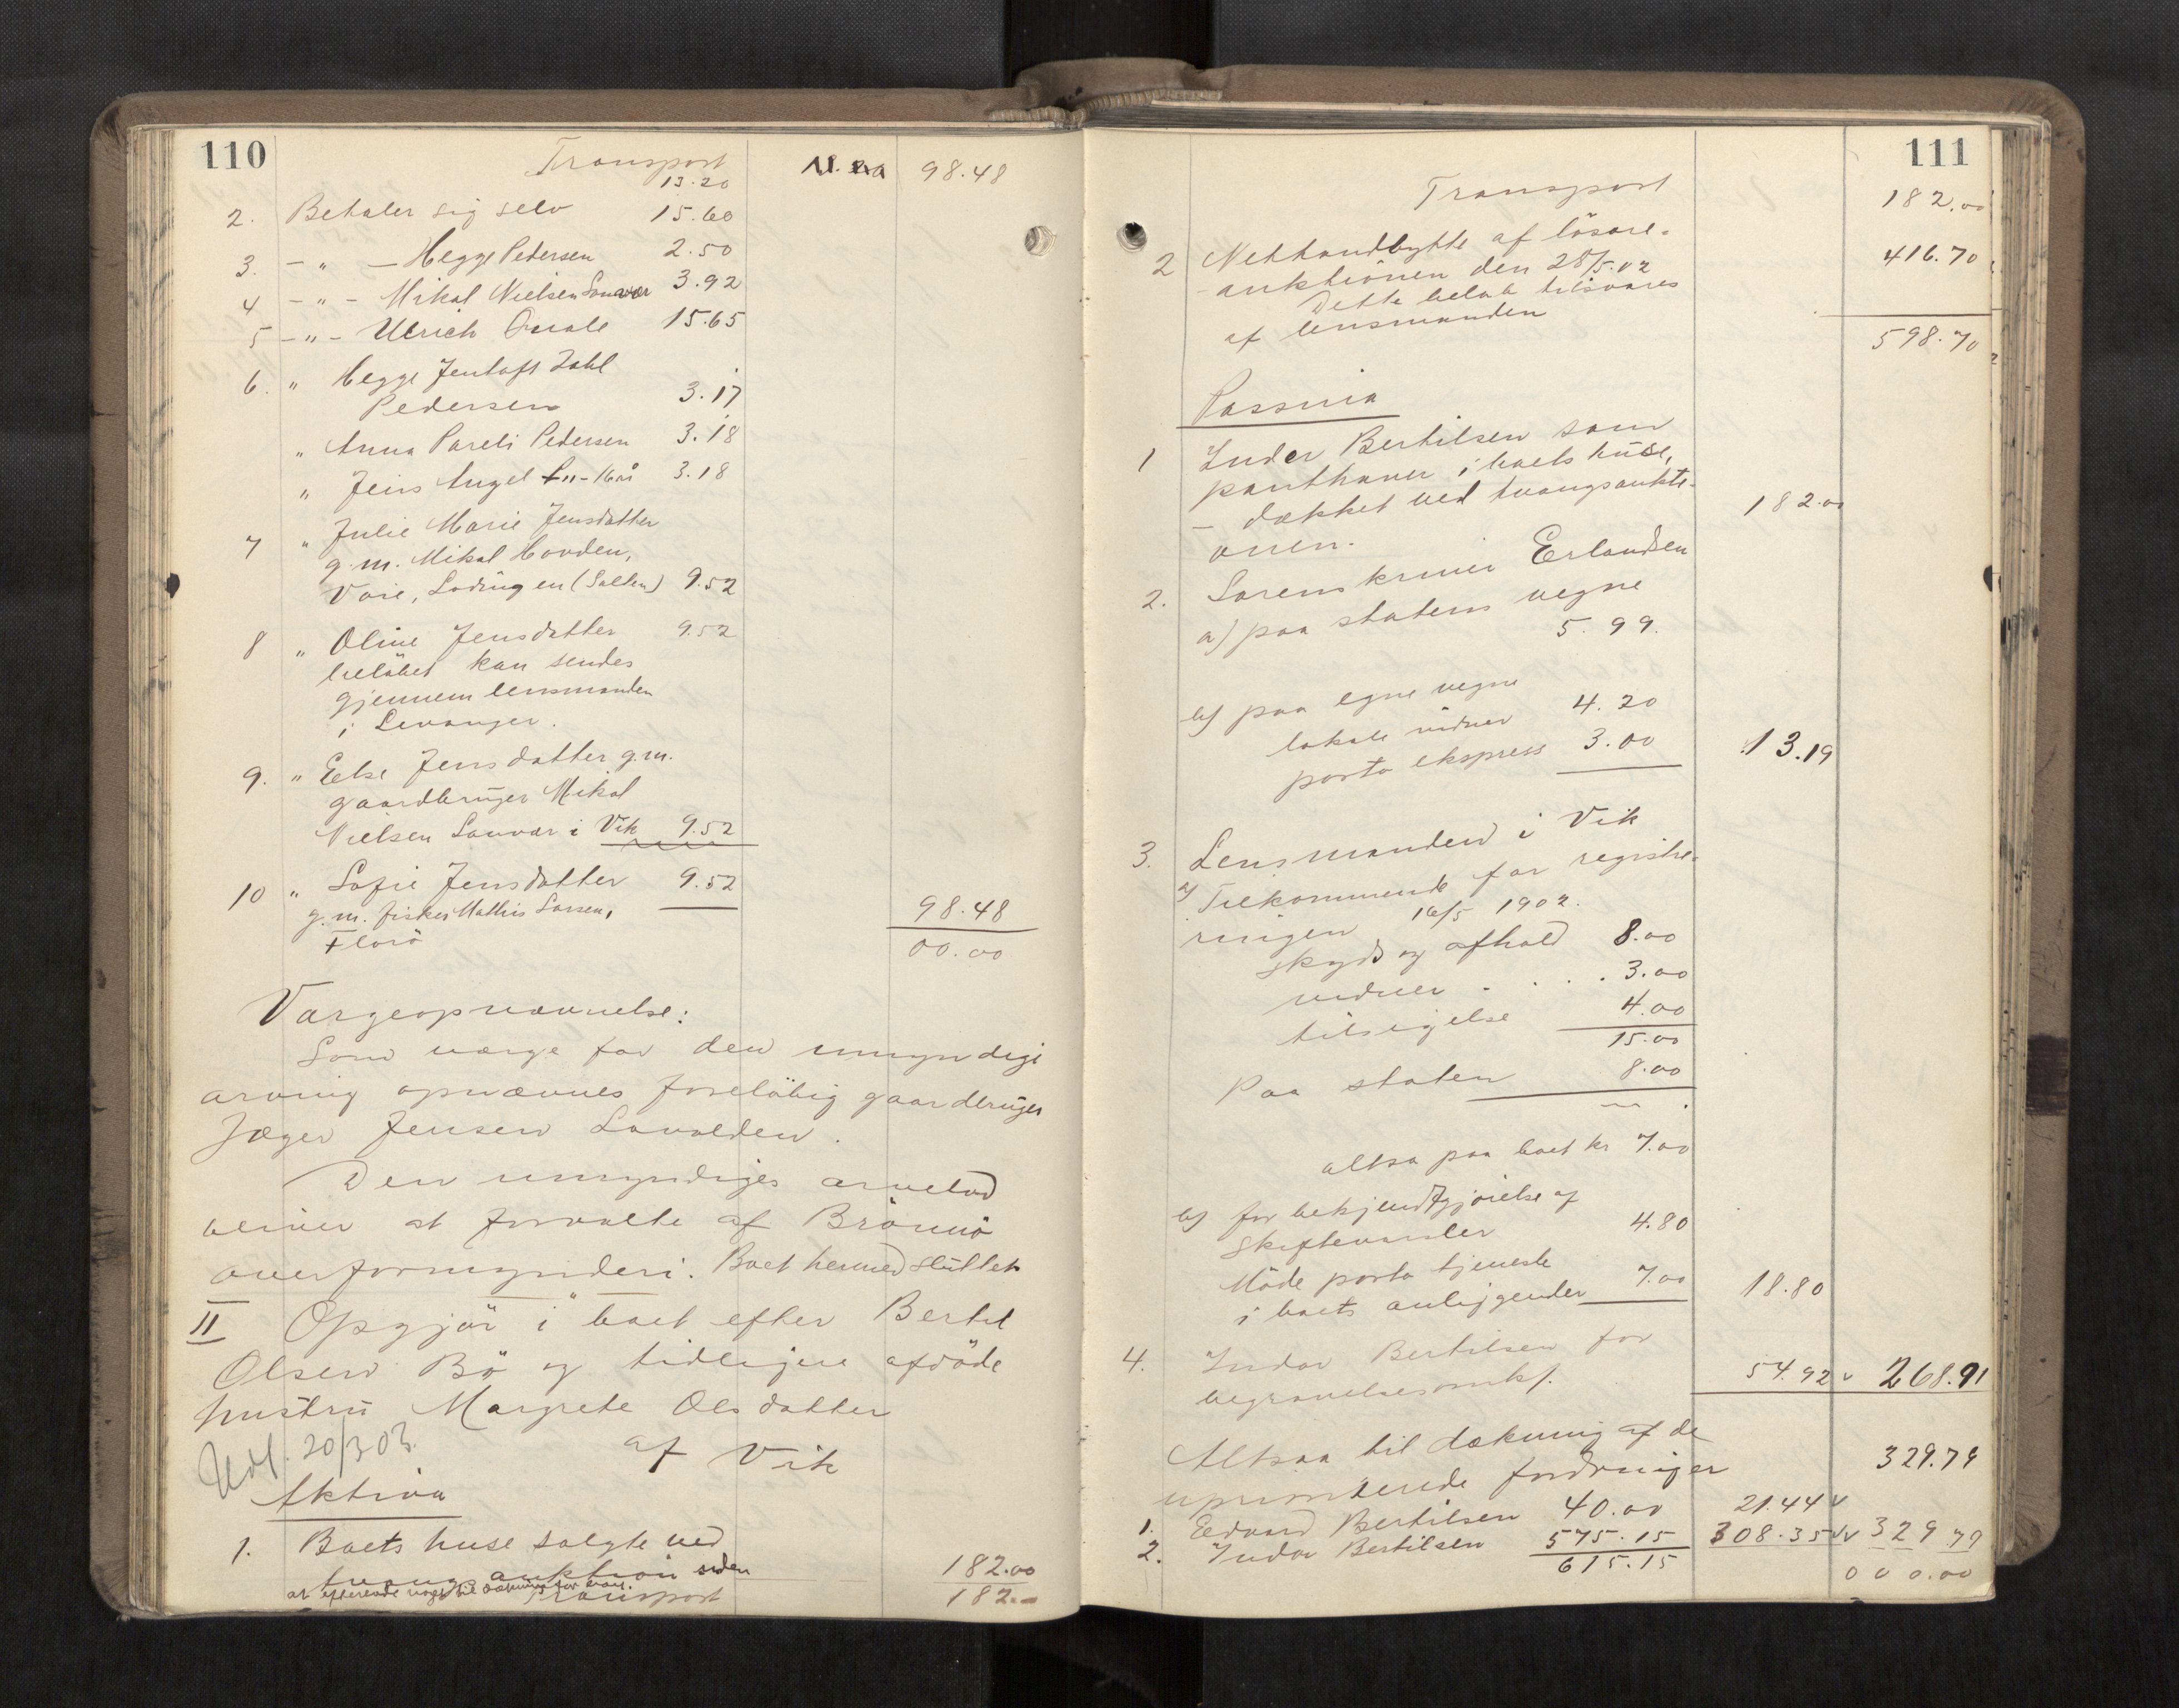 110
Transport 98.48
13.20
2. Betaler sig selv 15.60
3. - " - Hegge Pedersen 2.50
4 - " - Mikal Nielsen Sauvær 3.92
5 - " - Ulrich Qvale 15.65
6. " Hegge Jentoft Zahl
Pedersen 3.17
" Anna Pareli Pedersen 3.18
" Jens Angel - " - 16 år 3.18
7 " Julie Marie Jensdatter
g.m. Mikal Hovden,
Voie, Lødingen (Salten) 9.52
8 " Oline Jensdatter 9.52
beløbet kan sendes
gjennem lensmanden
i Levanger.
9. " Else Jensdatter g.m.
gaardbruger Mikal
Nielsen Sauvær i Vik 9.52
10 " Sofie Jensdatter 9.52
g.m. fisker Mathis Larsen,
Florö 98.48
00.00
Værgeopnævnelse:
Som værge for den umyndige
arving opnævnes foreløbig gaardbruger
Jæger Jensen
Den umyndiges arvelod
bliver at forvalte af Brönnö
overformynderi. Boet hermed sluttet
II Opgjör i boet efter Bertel
Olsen Bö og tidligere afdöde
hustru Margrete Olsdatter
af Vik
Udl. 20/3 03.
Aktiva
1. Boets huse solgte ved
tvangsauktion uden
at efterlade noget til dækning for boet. 182.00
Transport 182.-
111
Transport 182.00
2 Nettoudbytte af løsøre-
auktionen den 28/5.02 416.70
Dette beløb tilsvares
af lensmanden
598.70
Passiva
1 Indor Bertilsen som
panthaver i boets huse,
- dækket ved tvangsaukti-
onen. 182.00
2. Sorenskriver Erlandsen
a) paa statens vegne
5.99.
b) paa egne vegne
lokale vidner 4.20
porto ekspress 3.00 13.19
3. Lensmanden i Vik
a) Tilkommende for registre-
ringen 16/5 1902.
skyds og ophold 8.00
vidner . . . . 3.00
tilsigelse 4.00
15.00
Paa staten 8.00
altsa paa boet kr 7.00
b) for bekjendtgjörelse af
skiftevarsler 4.80
Möde porto tjeneste
i boets anliggender 7.00 18.80
4. Indor Bertilsen for
begravelsesomk. 54.92 268.91
Altsaa til dækning af de
uprioriterede fordringer 329.79
1. Edvard Bertilsen 40.00 21.44
2. Indor Bertilsen 575.15 308.35 329 79
615.15 000.00